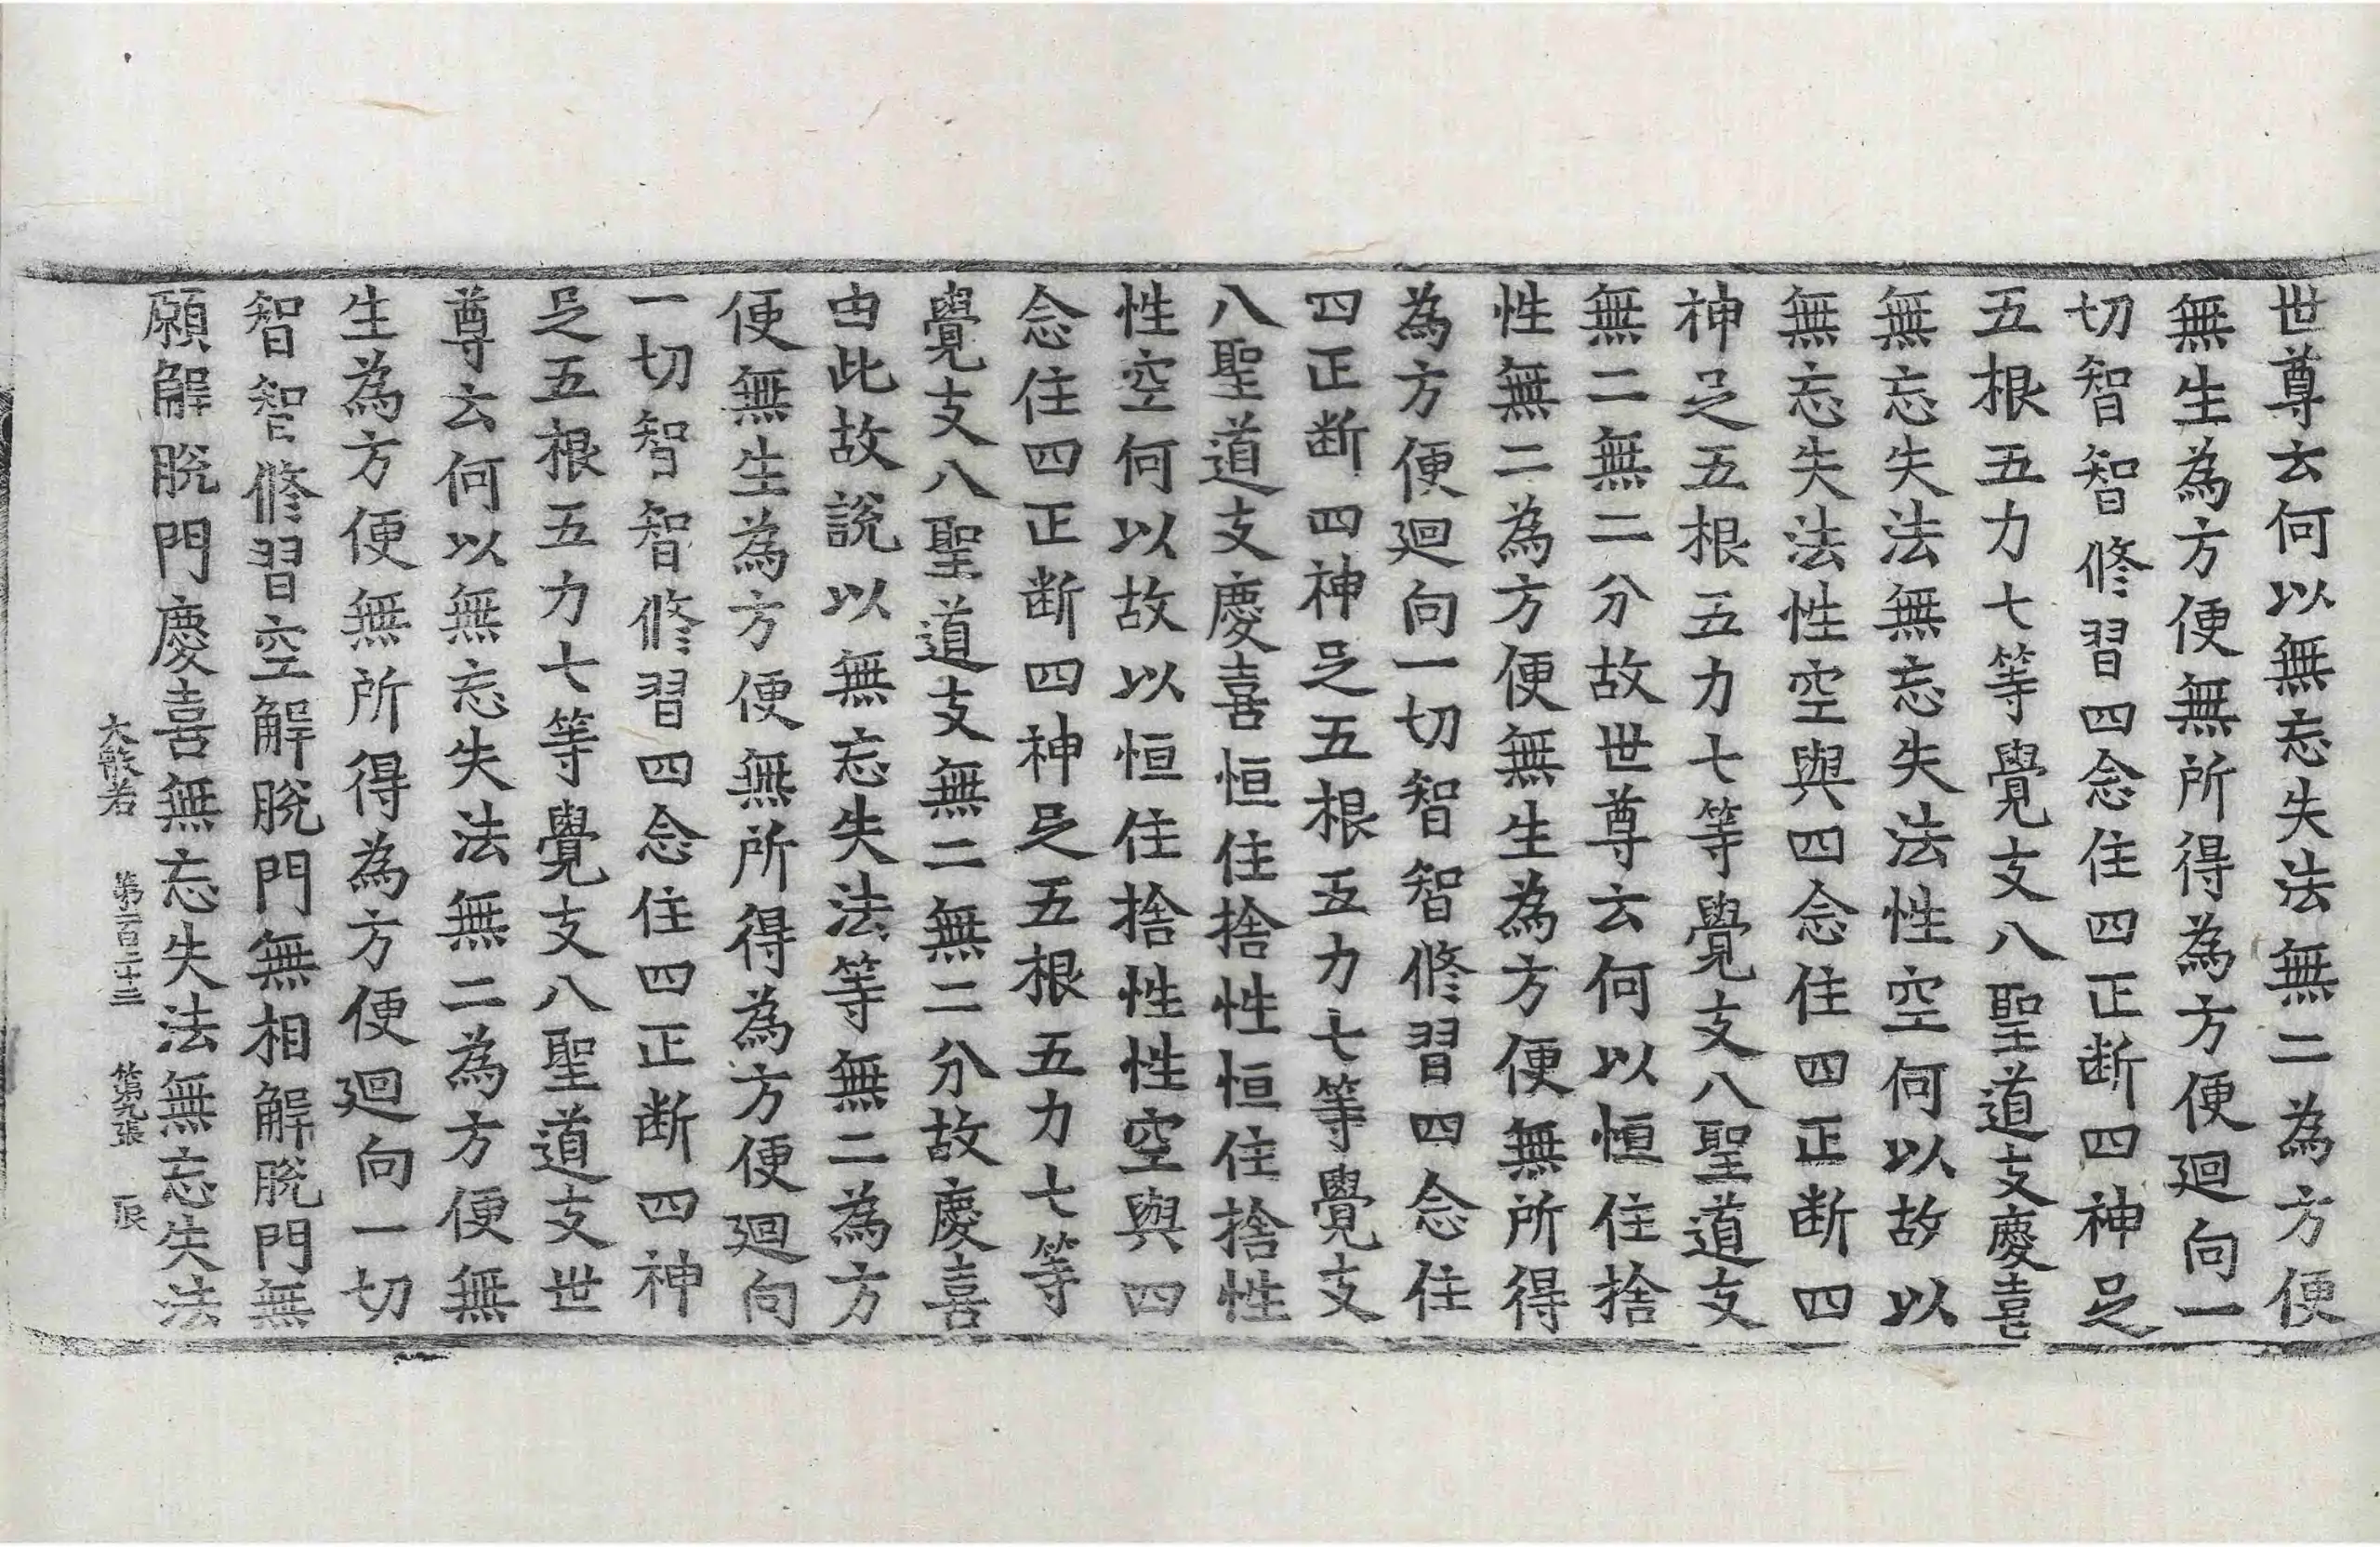 世尊云何以無忘失法無二為方便
無生為方便無所得為方便迴向一
切智智修習四念住四正断四神足
五根五力七等覺支八聖道支慶喜
無忘失法無忘失法性空何以故以
無忘失法性空與四念住四正断四
神足五根五力七等覺支八聖道支
無二無二分故世尊云何以恒住捨
性無二為方便無生為方便無所得
為方便迴向一切智智修習四念住
四正断四神足五根五力七等覺支
八聖道支慶喜恒住捨性恒住捨性
性空何以故以恒住捨性性空與四
念住四正断四神足五根五力七等
覺支八聖道支無二無二分故慶喜
由此故說以無忘失法等無二為方
便無生為方便無所得為方便迴向
一切智智修習四念住四正断四神
足五根五力七等覺支八聖道支世
尊云何以無忘失法無二為方便無
生為方便無所得為方便迴向一切
智智修習空解脫門無相解脫門無
願解脫門慶喜無忘失法無忘失法
大般若 第一百二十三 第九張